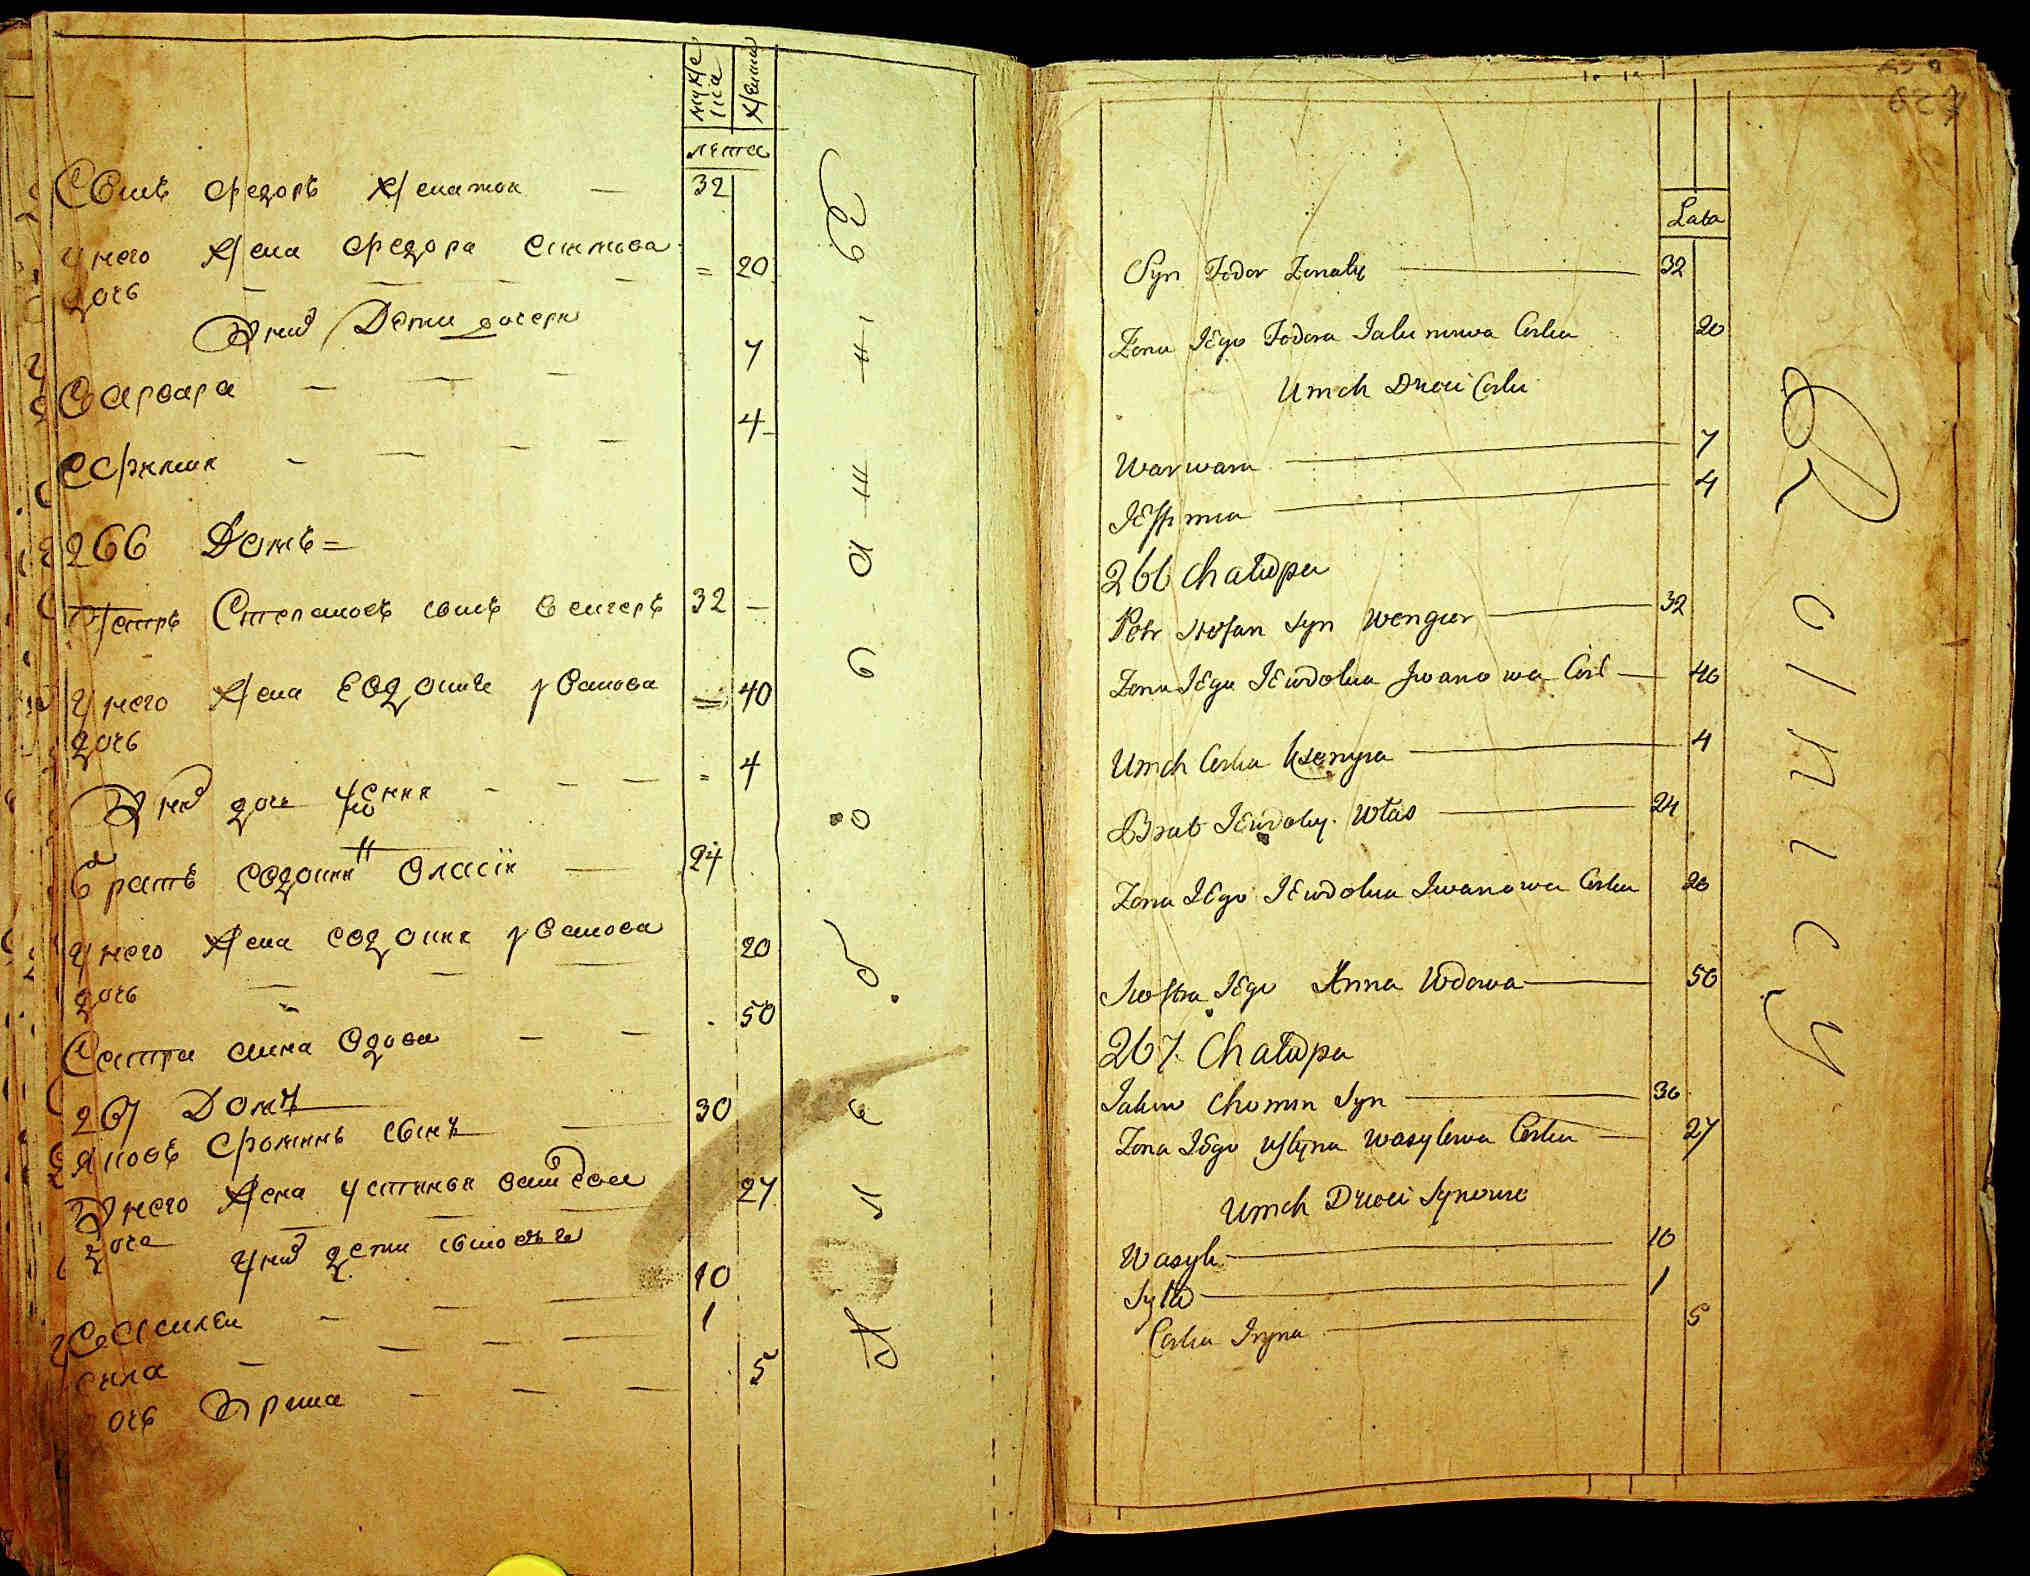 мужеска
женска
лета
Сынъ Федоръ женатой 32
у него жена Федора Якимова
дочь 20
У них Дети дочери
Варвара 7
Евфимия 4
266 Домъ
Петръ Степановъ сынъ Венгеръ 32
У него жена Евдокия Иванова 40
дочь
У них дочь Ксения 4
Братъ Евдокии Власий 24
у него жена Евдокия Иванова 20
дочь
Сестра Анна Вдова 50
267 Домъ
Яковъ Фоминъ сынъ 30
У него жена Устинья Василева 27
дочь
У них дети сыновья
Василей 10
Сила 1
дочь Ирина 5
629
Lata
Syn Fedor Żonaty 32
Żona Iego Fedora Iakimowa Corka 20
Umch Dzieci Corki
Warwara 7
Ieffimia 4
266 Chałupa
Petr Stefan Syn Wengier 32
Żona Iego Iewdokia Iwanowa Cor: 40
Umch Corka Ksenyia 4
Brat Iewdoky. Własi 24
Żona Iego Iewdokia Iwanowa Corka 20
Siostra Iego Anna Wdowa 50
267. Chałupa
Iakiw Chomin Syn 30
Żona Iego Ustyna Wasylewa Corka 27
Umch Dzieci Synowie
Wasyli 10
Syła 1
Corka Iryna 5
Rolnicy